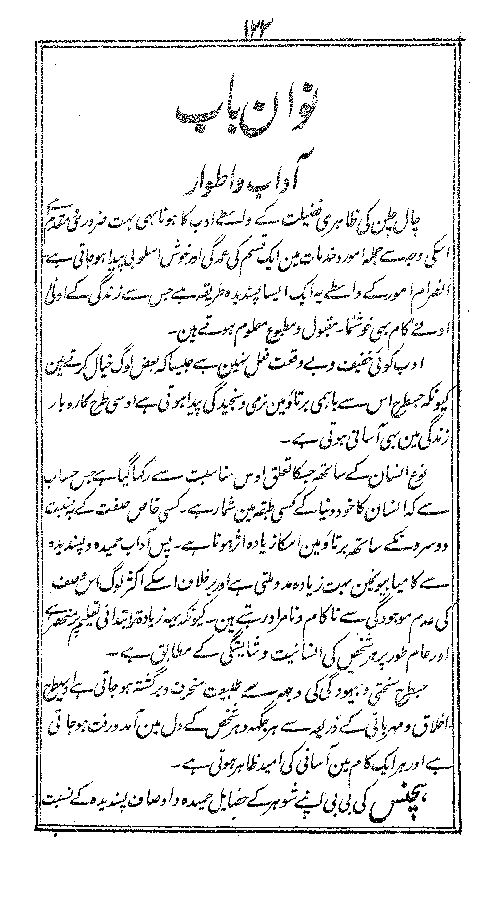 ۱۴۴
نوان باب
آداب و اطوار
چال چلن کی ظاہری فضیلت کے واسطے ادب کا ہونا بہی بہت ضروری و مقدم ہے
اسکی وجہ سے جملہ امور و خدمات مین ایک قسم کی عمدگی اور خوش اسلوبی پیدا ہو جاتی ہے
انصرام امور کے واسطے یہ ایک ایسا پسندیدہ طریقہ ہے جس سے زندگی کے ادنیٰ
ادنے کام بہی خوشنما۔ مقبول و مطبوع معلوم ہوتے ہین۔
ادب کوئی خفیف و بے وقعت فعل نہین ہے جیسا کہ بعض لوگ خیال کرتے ہین
کیونکہ جسطرح اس سے باہمی برتاؤ مین نرمی و سنجیدگی پیدا ہوتی ہے اوسی طرح کاروبار
زندگی مین بہی آسانی ہوتی ہے۔
نوع انسان کے ساتھ جسکا تعلق اوس مناسبت سے رکہا گیا ہے جس حساب
سے کہ انسان کا خود دنیا کے کسی طبقہ مین شمار ہے۔ کسی خاص صفت کے بہ نسبت
دوسرونکے ساتھ برتاؤ مین اسکا زیادہ اثر ہوتا ہے۔ پس آداب حمیدہ و پسندیدہ
سے کامیابیونمین بہت زیادہ مدد ملتی ہے اور برخلاف اسکے اکثر لوگ اس صفت
کی عدم موجودگی سے ناکام و نامراد رہتے ہین۔ کیونکہ یہ زیادہ تر ابتدائی تعلیم پر منحصر ہے
اور عام طور پر ہر شخص کی انسانیت و شایستگی کے مطابق ہے۔
جسطرح سختی و بیہودگی کی وجہ سے طبیعت منحرف و برگشتہ ہو جاتی ہے اوسیطرح
اخلاق و مہربانی کے ذریعہ سے ہر جگہ و ہر شخص کے دل مین آمد و رفت ہو جاتی
ہے اور ہر ایک کام مین آسانی کی امید ظاہر ہوتی ہے۔
ہچنسن کی بی بی اپنے شوہر کے خصایل حمیدہ و اوصاف پسندیدہ کے نسبت